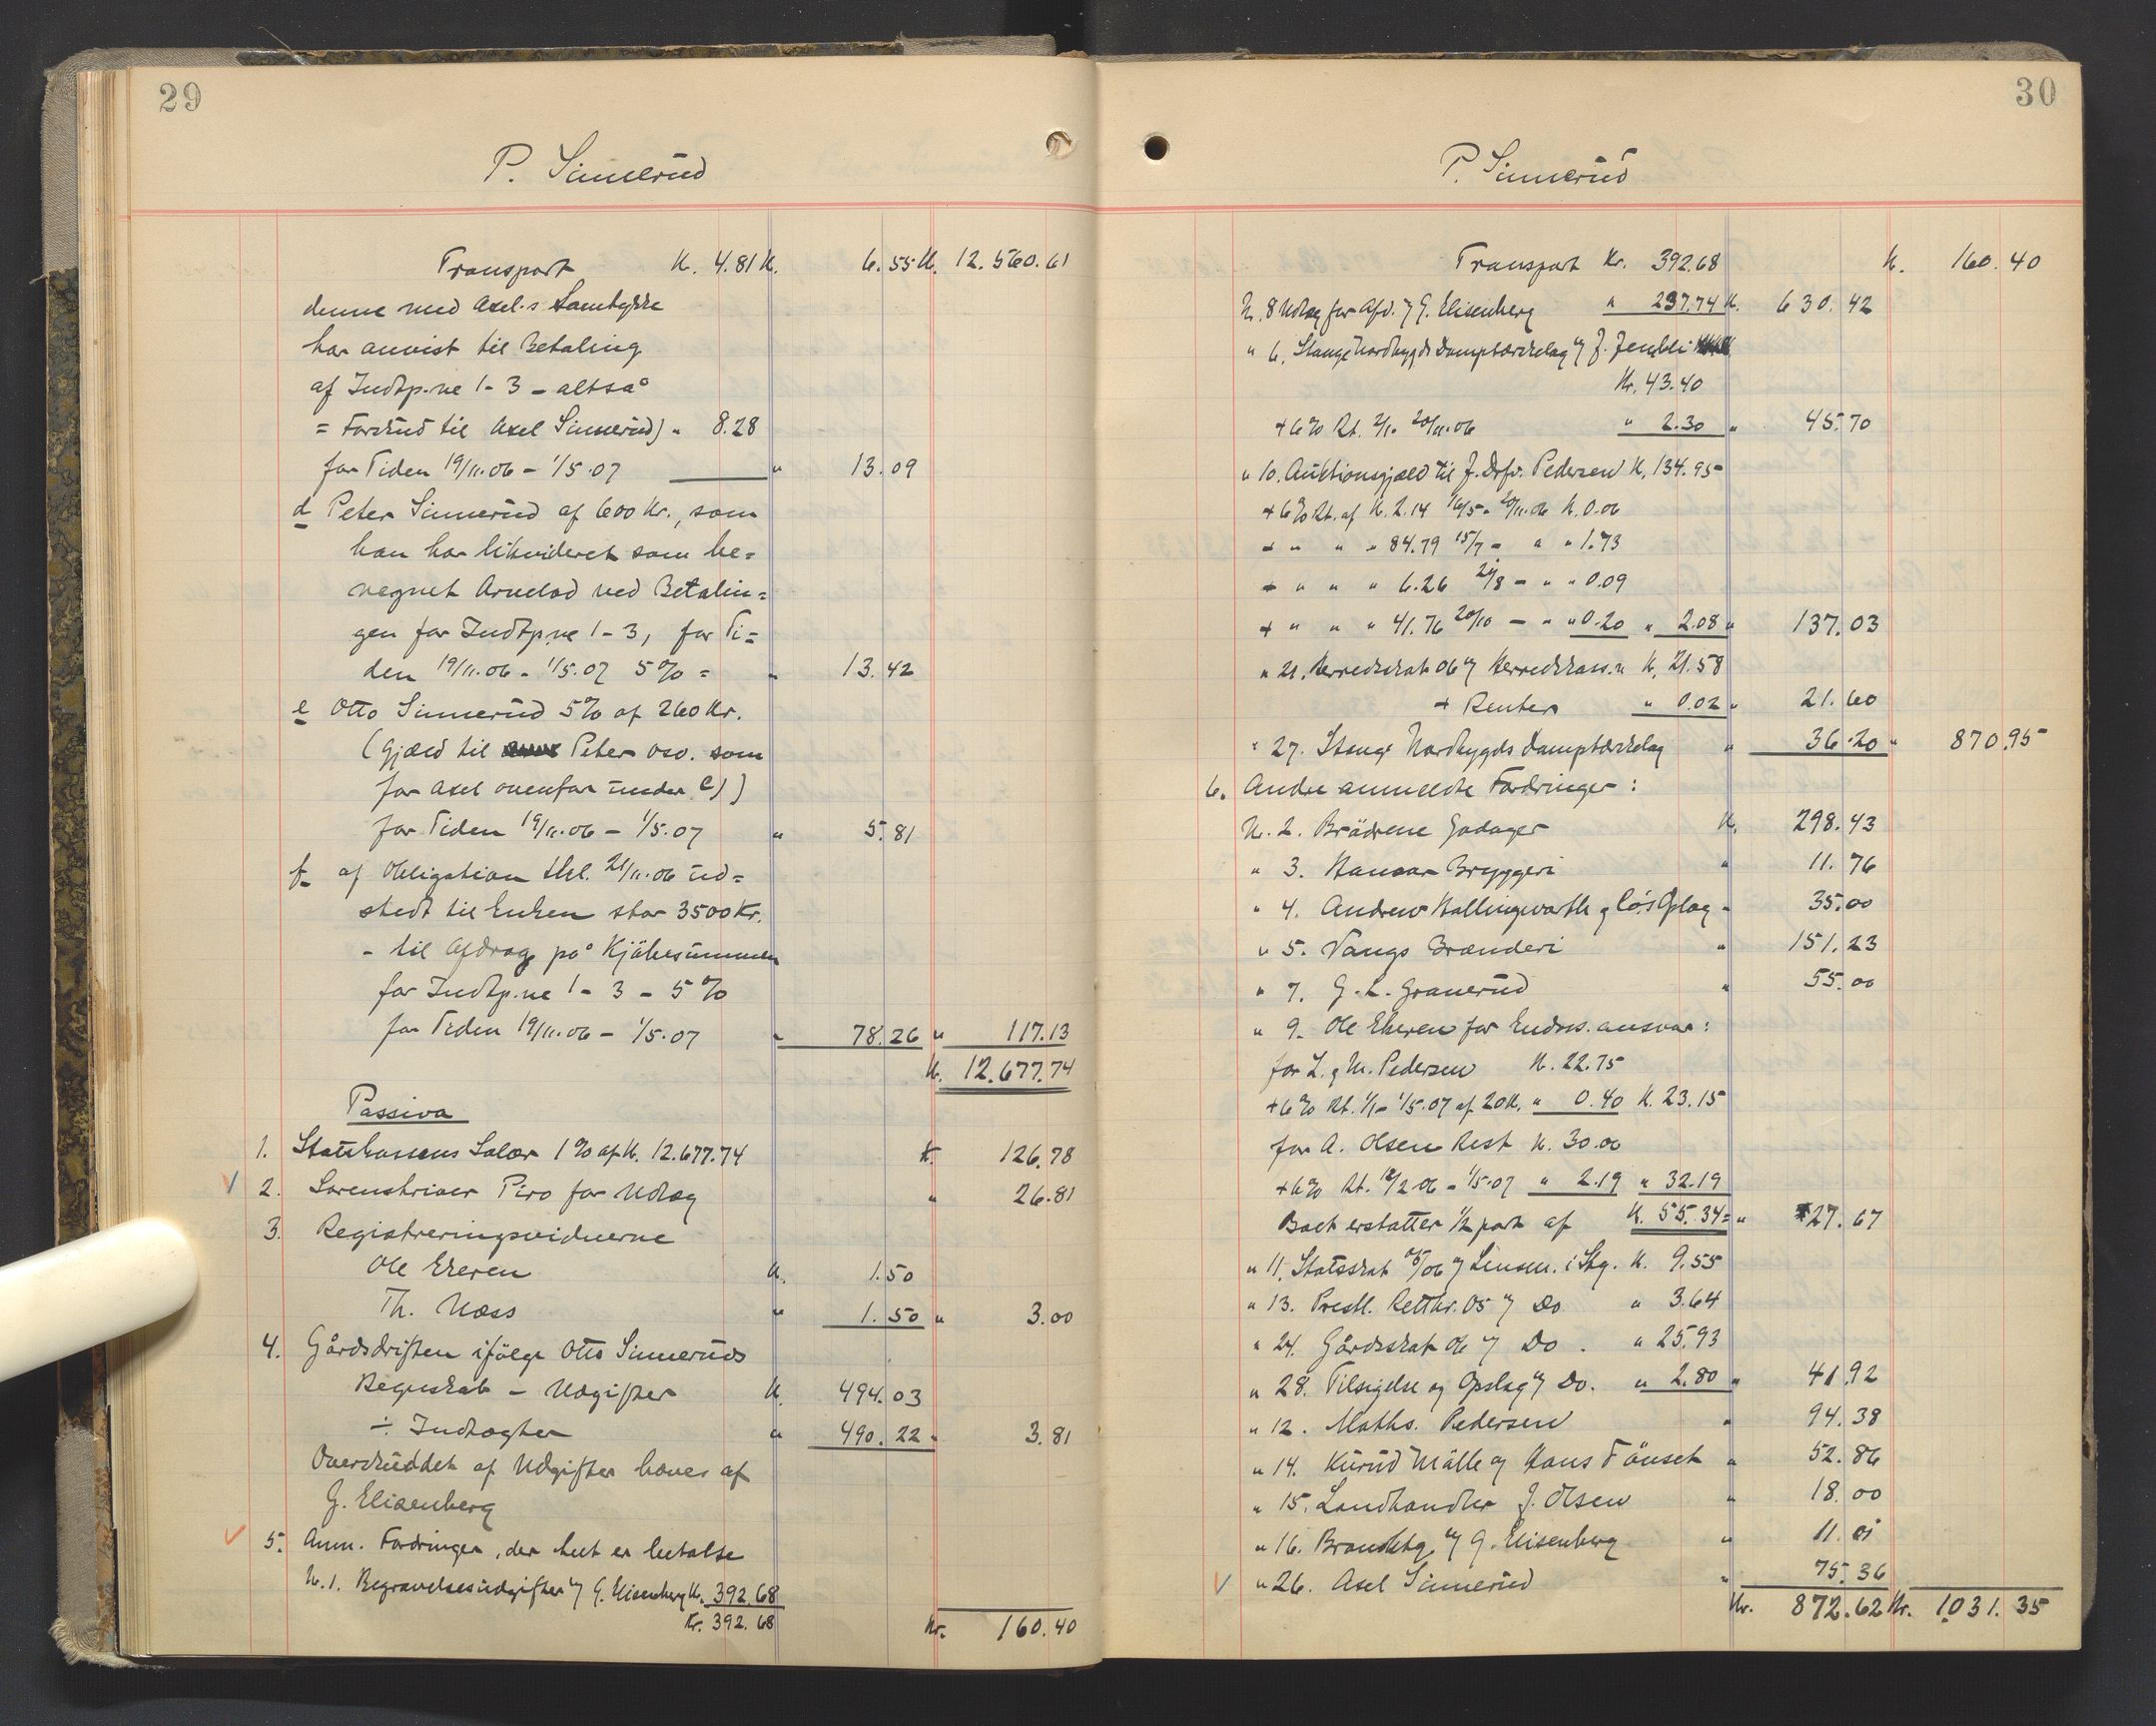 29
P. Sinnerud
Transport K. 4.81 K. 6.55 K. 12.560.61
denne med Axel.s Samtykke
har anvist til Betaling
af Indtp.ne 1-3 - altså
= Forskud til Axel Sinnerud) " 8.28
for Tiden 19/11.06 - 1/5.07 " 13.09
d Peter Sinnerud af 600 Kr., som
han har likvideret som be=
regnet Arvelod ved Betalin=
gen for Indtp.ne 1-3, for Ti=
den 19/11.06 - 1/5.07 5% = " 13.42
e Otto Sinnerud 5% af 260 Kr.
(Gjæld til Peter osv. som
for Axel ovenfor under c))
for Tiden 19/11.06 - 1/5.07 " 5.81
f. af Obligation thl. 21/11.06 ud=
stedt til Enken stor 3500 Kr.
- til Afdrag på Kjöbesummen
for Indtp.ne 1-3 - 5%
for Tiden 19/11.06 - 1/5.07 " 78.26 " 117.13
K. 12.677.74
Passiva
1. Statskassens Salær 1% af K. 12.677.74 K. 126.78
2. Sorenskriver Piro for Udlæg " 26.81
3. Registreringsvidnerne
Ole Ekeren K. 1.50
Th. Næss " 1.50 " 3.00
4. Gårdsdriften ifölge Otto Sinneruds
Regnskab - Udgifter K. 494.03
÷ Indtægter " 490.22 " 3.81
Overskuddet af Udgifter hæves af
G. Elisenberg
5. Anm. Fordringer, der helt er betalte
N. 1. Begravelsesudgifter v/ G. Elisenberg K. 392.68
Kr. 392.68 Kr. 160.40
30
P. Sinnerud
Transport Kr. 392.68 K. 160.40
N. 8 Udlæg for Afd. v/ G. Elisenberg " 237.74 K. 630.42
" 6. Stange Nordbygds Damptærskelag v/ J. Jembli
Kr. 43.40
+ 6% Rt. 2/1 - 20/11.06 " 2.30 " 45.70
" 10. Auktionsgjæld til J. Drfv. Pedersen K. 134.95
+ 6% Rt. af K. 2.14 16/5 - 20/11.06 K. 0.06
+ " " " 84.79 15/7 - " " 1.73
+ " " " 6.26 24/8 - " " 0.09
+ " " " 41.76 20/10 - " " 0.20 " 2.08 " 137.03
" 21. Herredsskat 06 v/ Herredskass.n K. 21.58
+ Renter " 0.02 " 21.60
" 27. Stange Nordbygds Damptærskelag " 36.20 " 870.95
6. Andre anmeldte Fordringer:
N. 2. Brödrene Godager K. 298.43
" 3. Hamar Bryggeri " 11.76
" 4. Andrew Hollingworth & Co.s Oplag " 35.00
" 5. Vangs Brænderi " 151.23
" 7. G. L. Granerud " 55.00
" 9. Ole Ekeren for Endoss. ansvar:
for L. & M. Pedersen K. 22.75
+ 6% Rt. 1/1 - 1/5.07 af 20 K. " 0.40 K. 23.15
for A. Olsen Rest K. 30.00
+ 6% Rt. 12/2 06 - 1/5.07 " 2.19 " 32.19
Boet erstatter 1/2 part af K. 55.34 = " 27.67
" 11. Statsskat 05/06 v/ Lensm. i Stg. K. 9.55
" 13. Prestl. Retthr. 05 v/ Do " 3.64
" 24. Gårdsskat 06 v/ Do. " 25.93
" 28. Tilsigelse og Opslag v/ Do. " 2.80 " 41.92
" 12. Maths. Pedersen " 94.38
" 14. Kurud Mölle v/ Hans Fönset " 52.86
" 15. Landhandler J. Olsen " 18.00
" 16. Brandktg. v/ G. Elisenberg " 11.01
" 26. Axel Sinnerud " 75.36
Kr. 872.62 Kr. 1.031.35